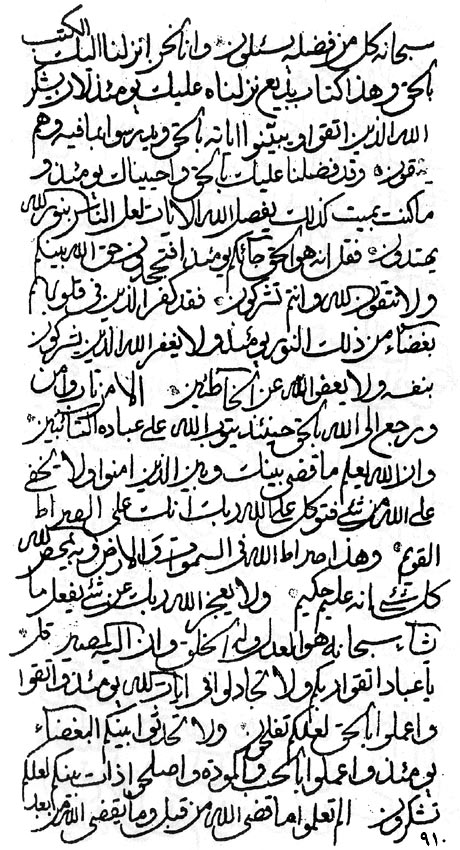 سبحانه كل من فضله يسئلون وانا نحن انزلنا اليك الكتب
بالحق وهذا كتاب بديع نزلناه عليك يومئذ لان يشكر
الله الذين اتقوا ويبينوا اياته بالحق
وقد فصلنا عليك بالحق واحييناك يومئذ و
ما كنت بميت كذلك يفصل الله الايات لعل الناس بنور الله
يهتدون فقل انه هو الحق جائكم يومئذ حق الله بينكم
ولا تتقون لله وانتم تشركون فقد كفر الذين في قلوبهم
بغضاء من ذلك النور يومئذ ولا يغفر الله الذين يشركون
بنفسه ولا يعفوالله عن الخاطئين الا من تاب وامن
ورجع الى الله بالحق حينئذ يتوب الله على عباده التائبين
وان الله يعلم ما قضى بينك وبين الذين امنوا ولا يخفى
على الله من شئ فتوكل على الله ربك انك على الصراط
القويم وهذا صراط الله في السموات والارض
كل شئ انه عليم حكيم ولا يعجز الله ربك عن شئ يفعل ما
يشاء سبحانه هو الخلق وان اليه المصير قل
يا عباد اتقوا ربكم ولا تجادلوا في ايات الله يومئذ واتقوا
واعملوا بالحق لعلكم تفلحون ولا تحدثوا بينكم البغضاء
يومئذ واعملوا بالحب والمودة واصلحوا ذات بينكم لعلكم
تشكرون الم تعلموا ما قضى الله من قبل وما يقضى الله من بعد
٩١٠